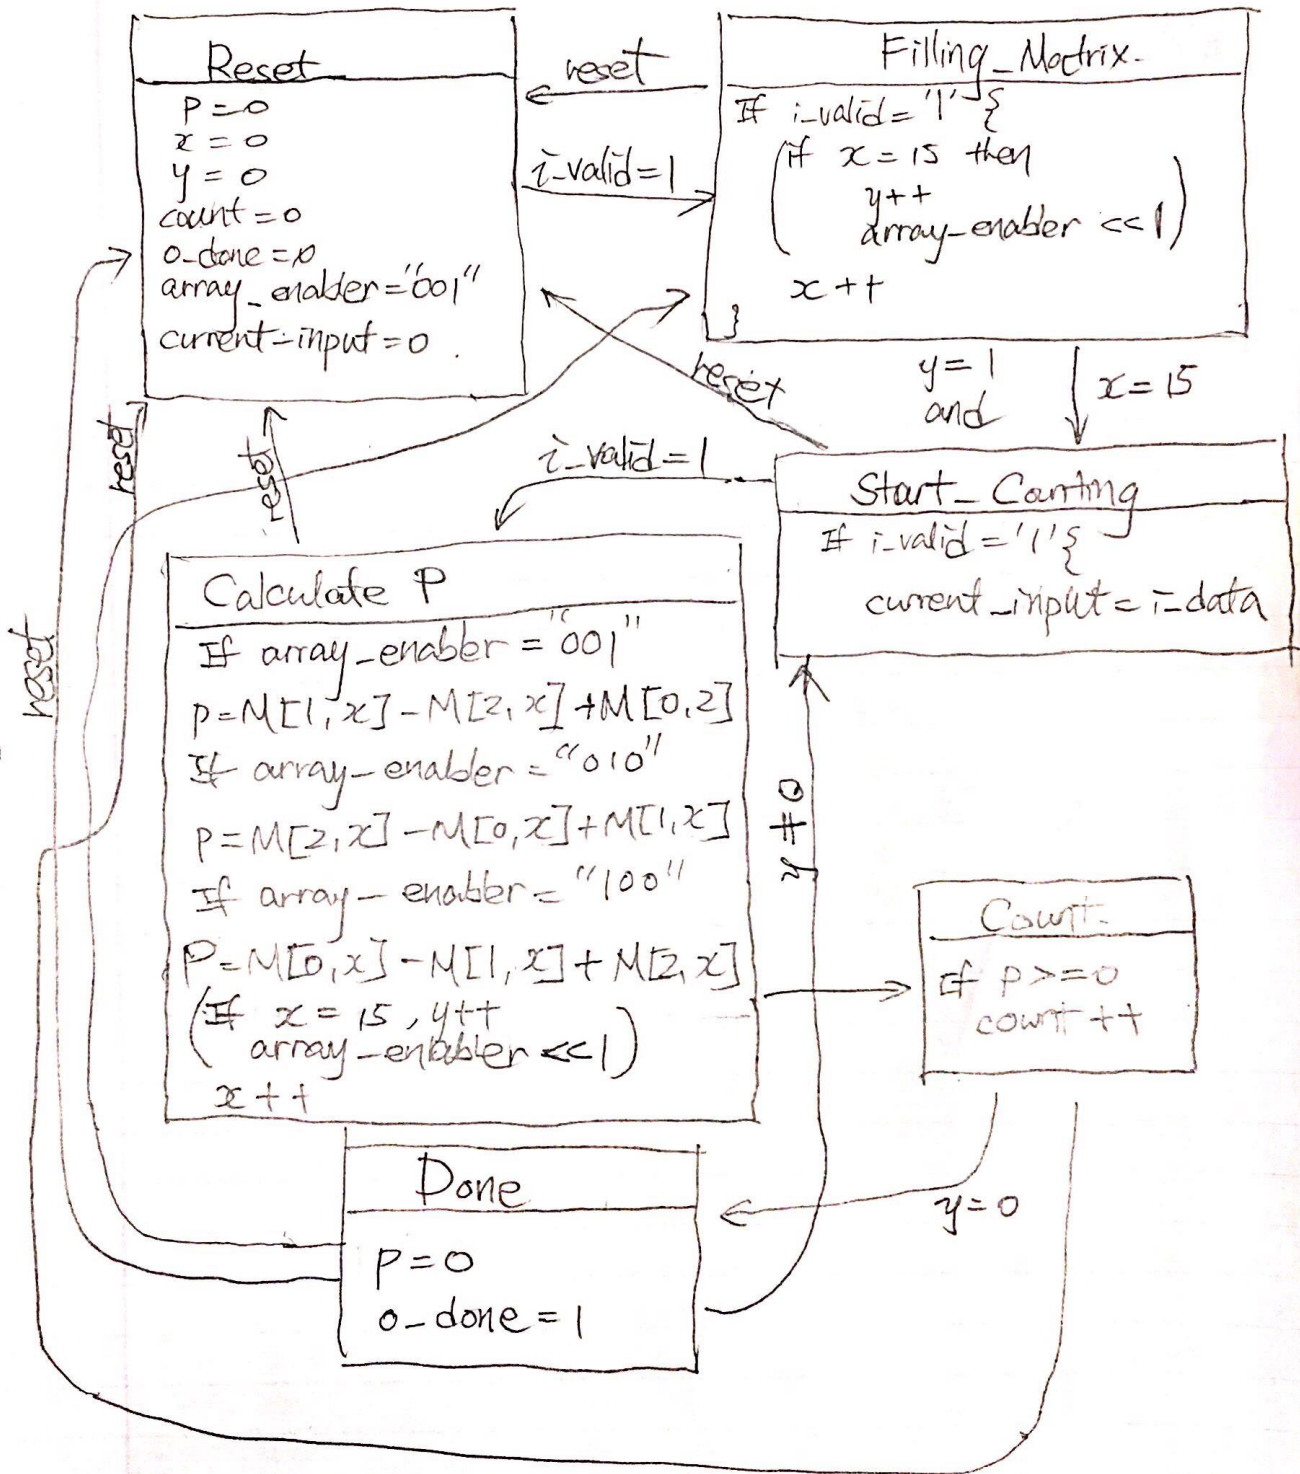 Reset
P=0
x=0
y=0
count=0
o-done=0
array_enabler="001"
current-input=0.
reset
i-valid=1
Filling_Matrix.
If i-valid='1'{
(if x=15 then
y++
array-enabler <<1)
x++
}
reset
y=1
and
x=15
i-valid=1
Start_Counting
If i-valid='1'{
current_input=i-data
reset
reset
reset
Calculate P
If array-enabler="001"
p=M[1,x]-M[2,x]+M[0,2]
If array-enabler="010"
p=M[2,x]-M[0,x]+M[1,x]
If array-enabler="100"
P=M[0,x]-M[1,x]+M[2,x]
(If x=15, y++
array-enabler <<1)
x++
y≠0
Count.
If p>=0
count++
y=0
Done
P=0
o-done=1